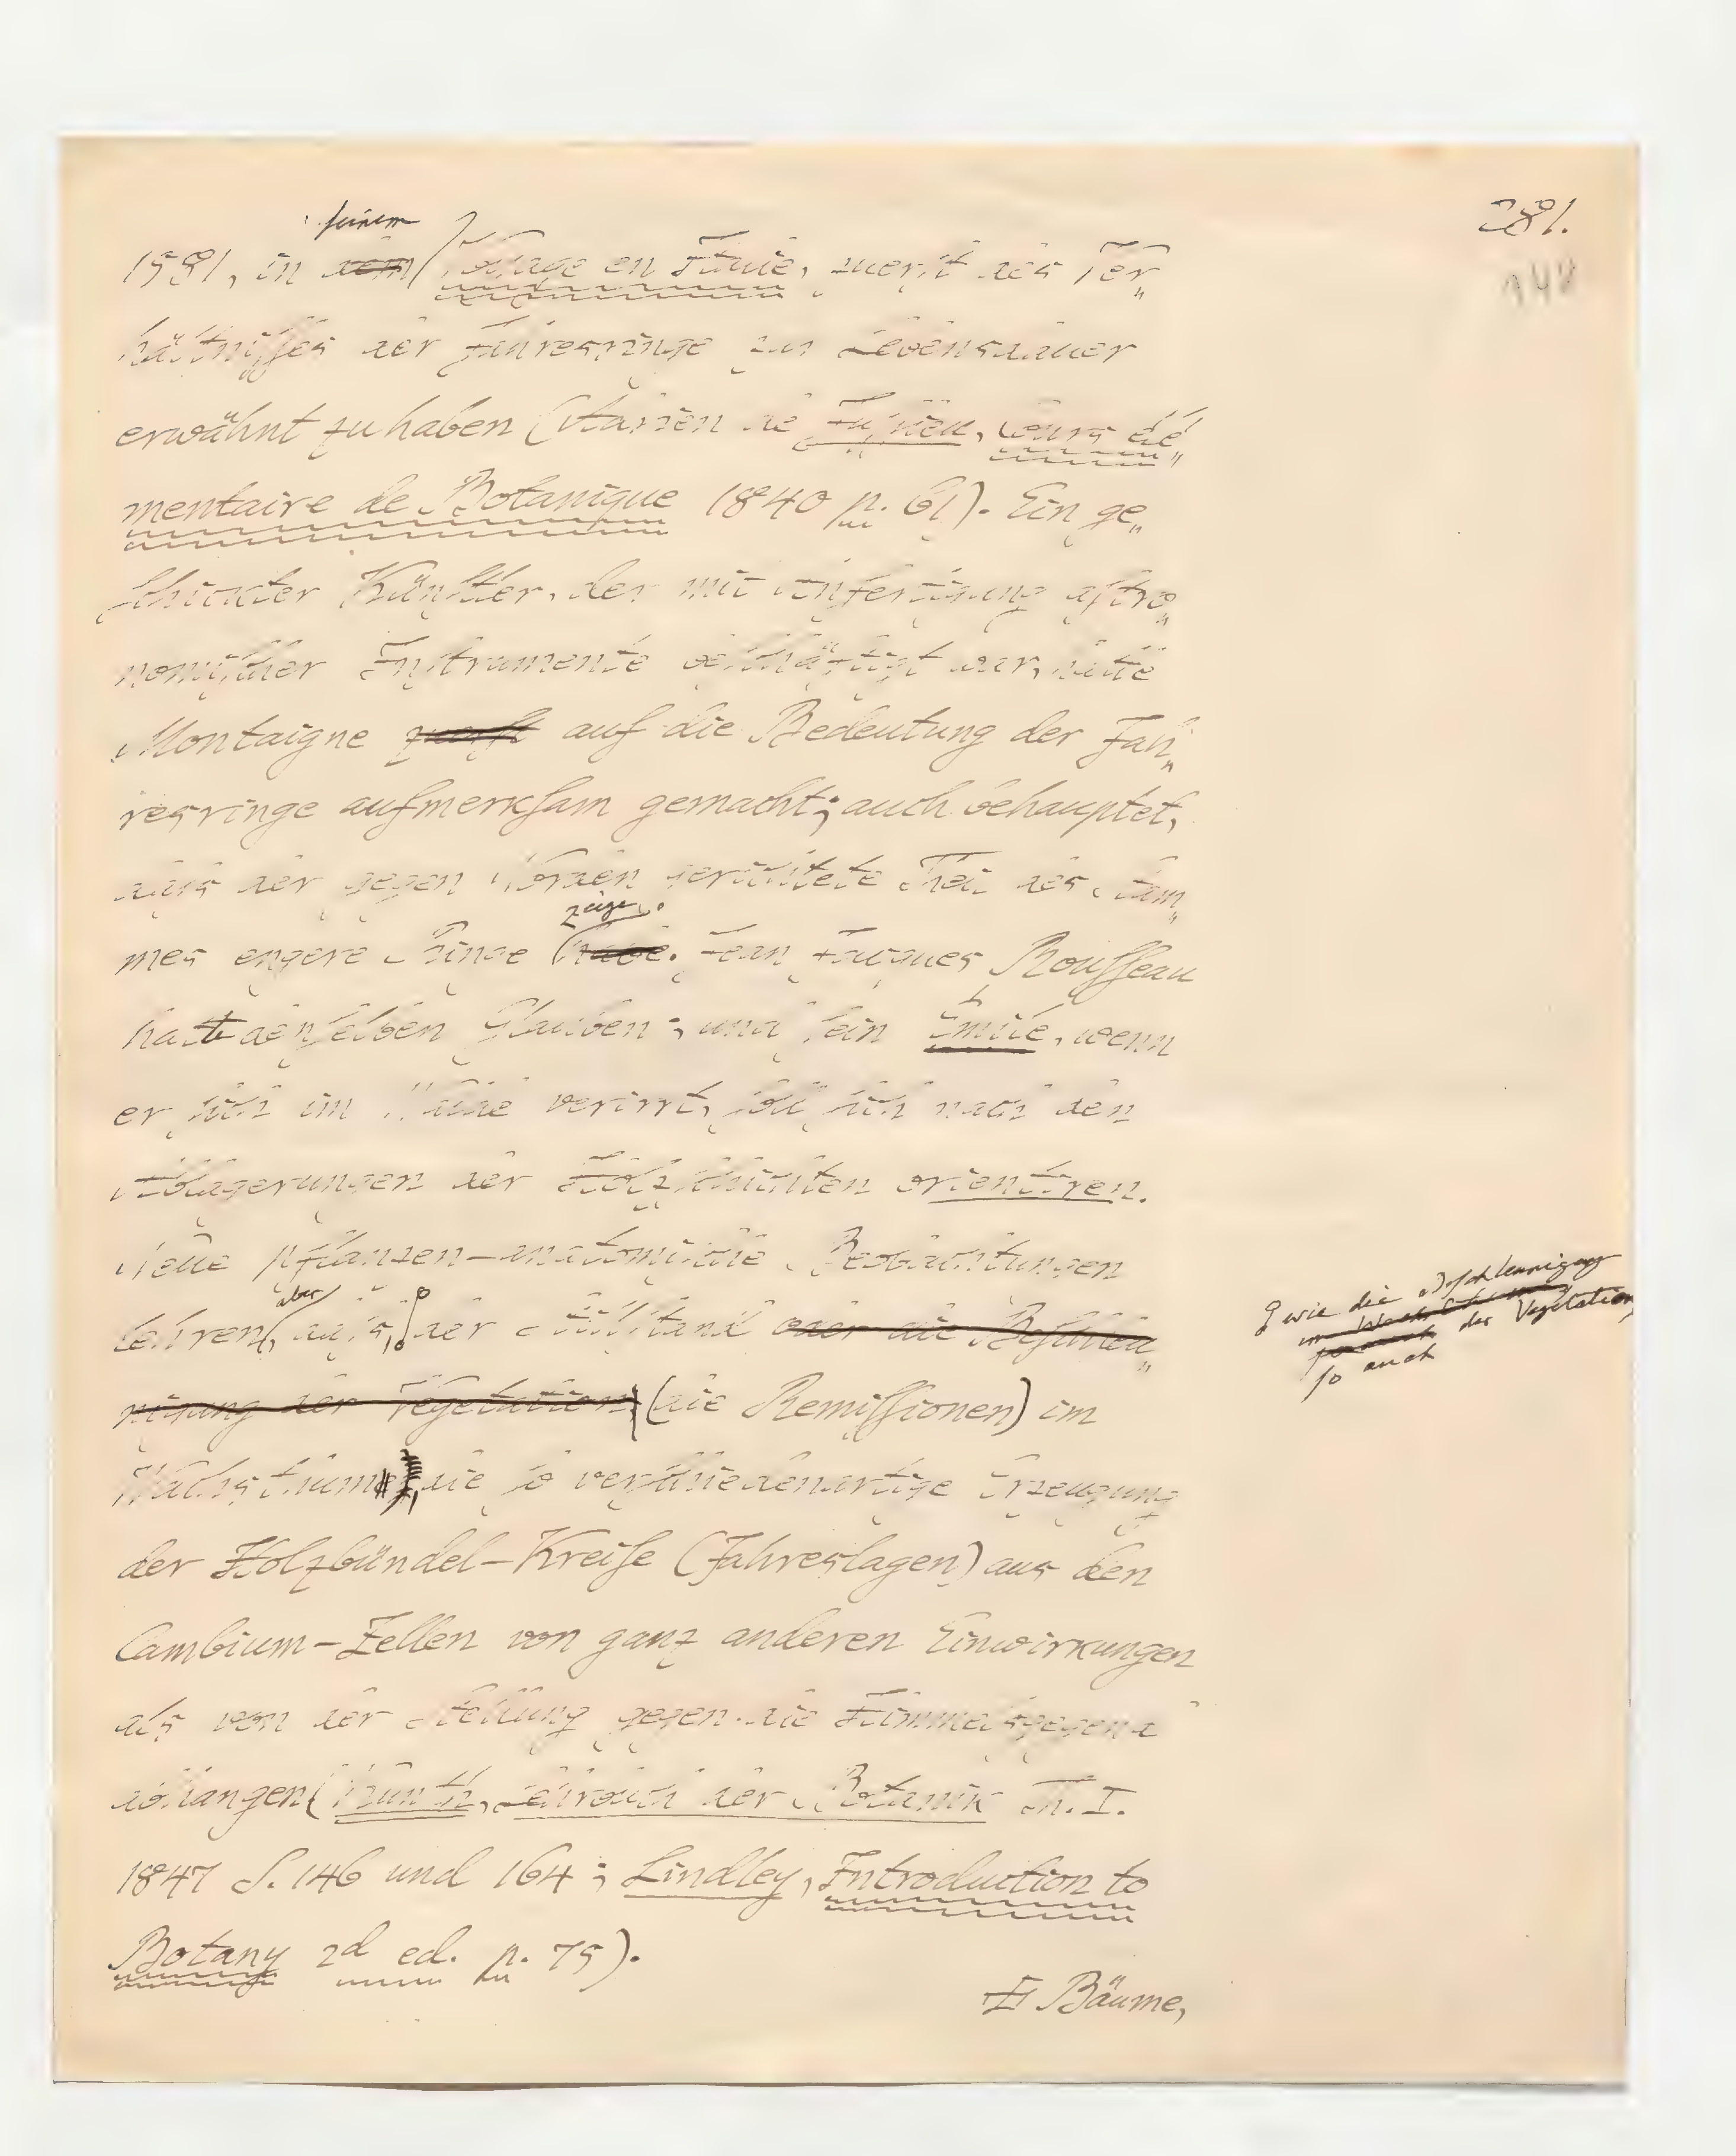 281.
142
seinem
1581, in dem Voyage en Italie, zuerst des Ver„
hältnisses der Jahresringe zur Lebensdauer
erwähnt zu haben (Adrien de Jussieu, Cours élé„
mentaire de Botanique 1840 p. 61). Ein ge„
schickter Künstler, der mit Anfertigung astro„
nomischer Instrumente beschäftigt war, hatte
Montaigne zuerst auf die Bedeutung der Jah„
resringe aufmerksam gemacht; auch behauptet,
dass der gegen Norden gerichtete Theil des Stam„
zeige.
mes engere Ringe habe. Jean Jacques Rousseau
hatte denselben Glauben; und sein Emile, wenn
er sich im Walde verirrt, soll sich nach den
Ablagerungen der Holzschichten orientiren.
Neue pflanzen-anatomische Beobachtungen
aber
lehren, dass, der Stillstand oder die Beschleu„
nigung der Vegetation, (die Remissionen) im
wie die Beschleunigung
im Wachsthum
der Vegetation,
so auch
Wachsthum, die so verschiedenartige Erzeugung
der Holzbündel-Kreise (Jahreslagen) aus den
Cambium-Zellen von ganz anderen Einwirkungen
als von der Stellung gegen die Himmelsgegend
abhangen (Kunth, Lehrbuch der Botanik Th. I.
1847 S. 146 und 164; Lindley, Introduction to
Botany 2d ed. p. 75).
Bäume,